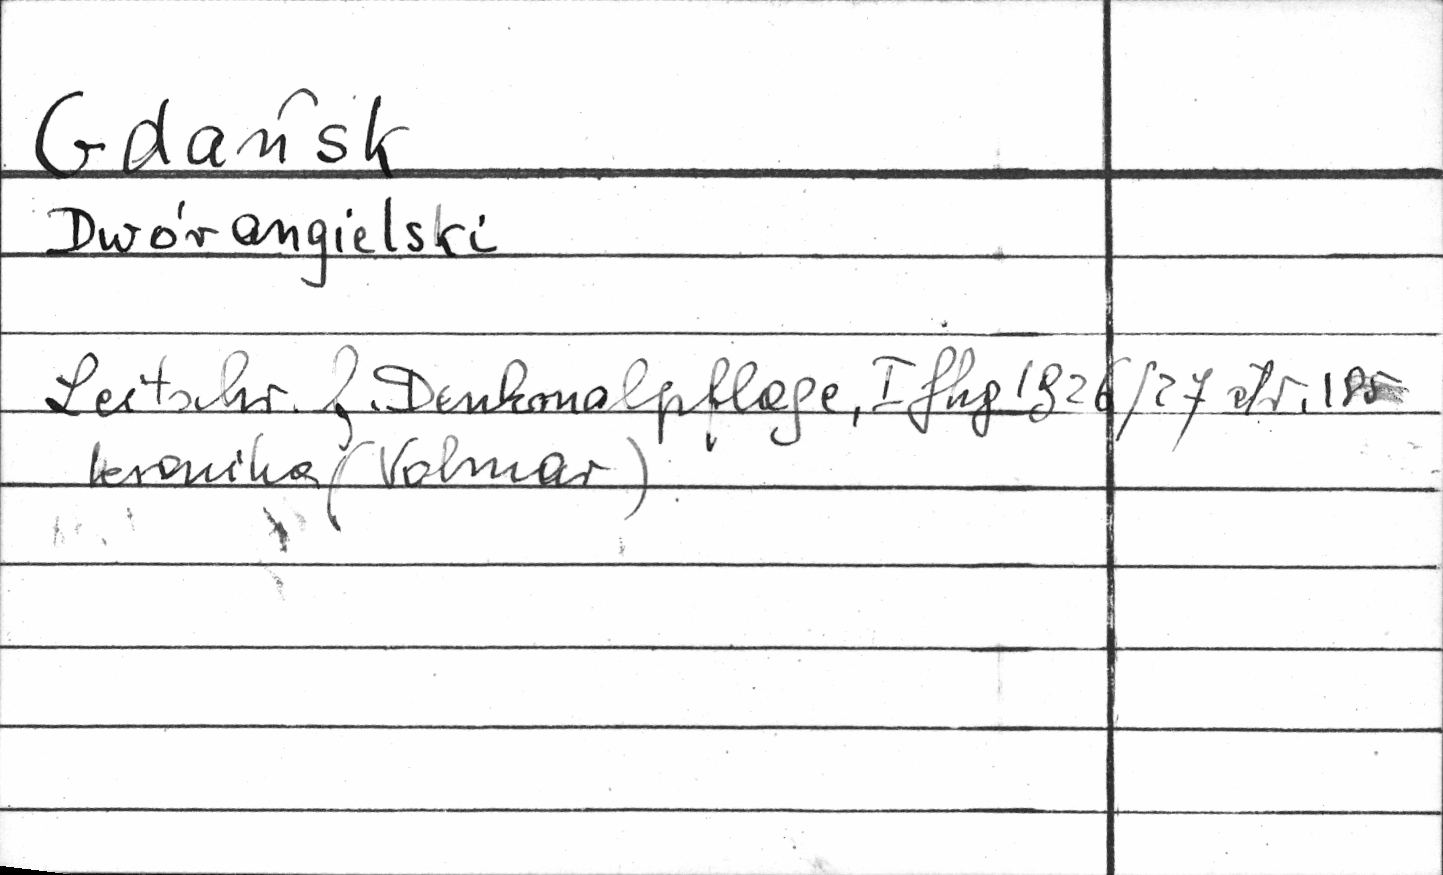 Gdańsk
Dwór angielski
Zeitschr. f. Denkmalpflege, I Jhg 1926/27 str. 185
kronika (Volmar)